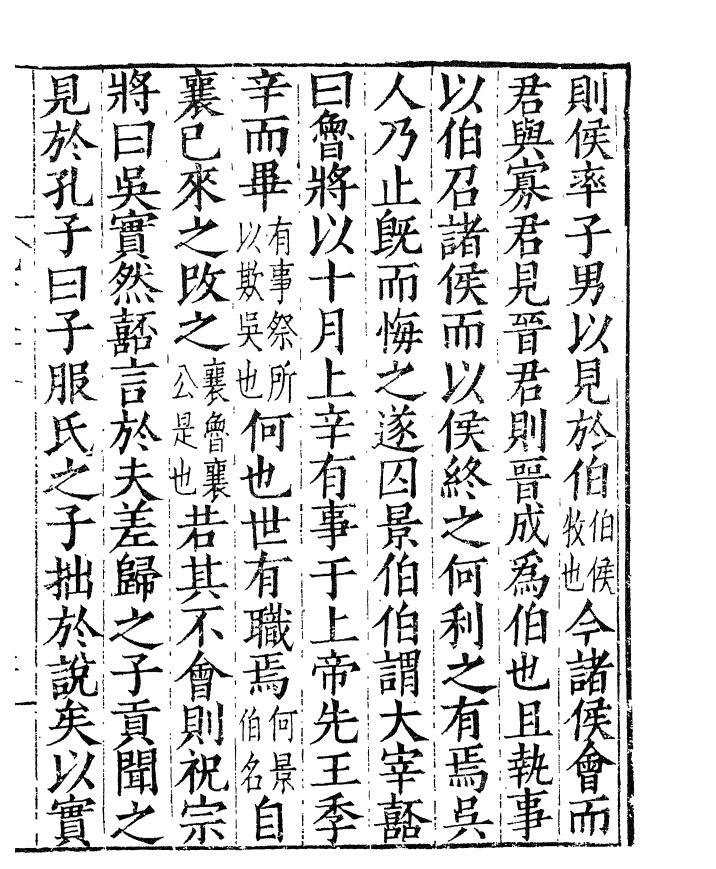 則侯率子男以見於伯伯侯牧也今諸侯會而
君與寡君見晉君則晉成為伯也且執事
以伯召諸侯而以侯終之何利之有焉吳
人乃止旣而悔之遂囚景伯伯謂大宰嚭
曰魯將以十月上辛有事于上帝先王季
辛而畢有事祭所以欺吳也何也世有職焉何景伯名自
襄已來之改之襄魯襄公是也若其不會則祝宗
將曰吳實然嚭言於夫差歸之子貢聞之
見於孔子曰子服氏之子拙於說矣以實